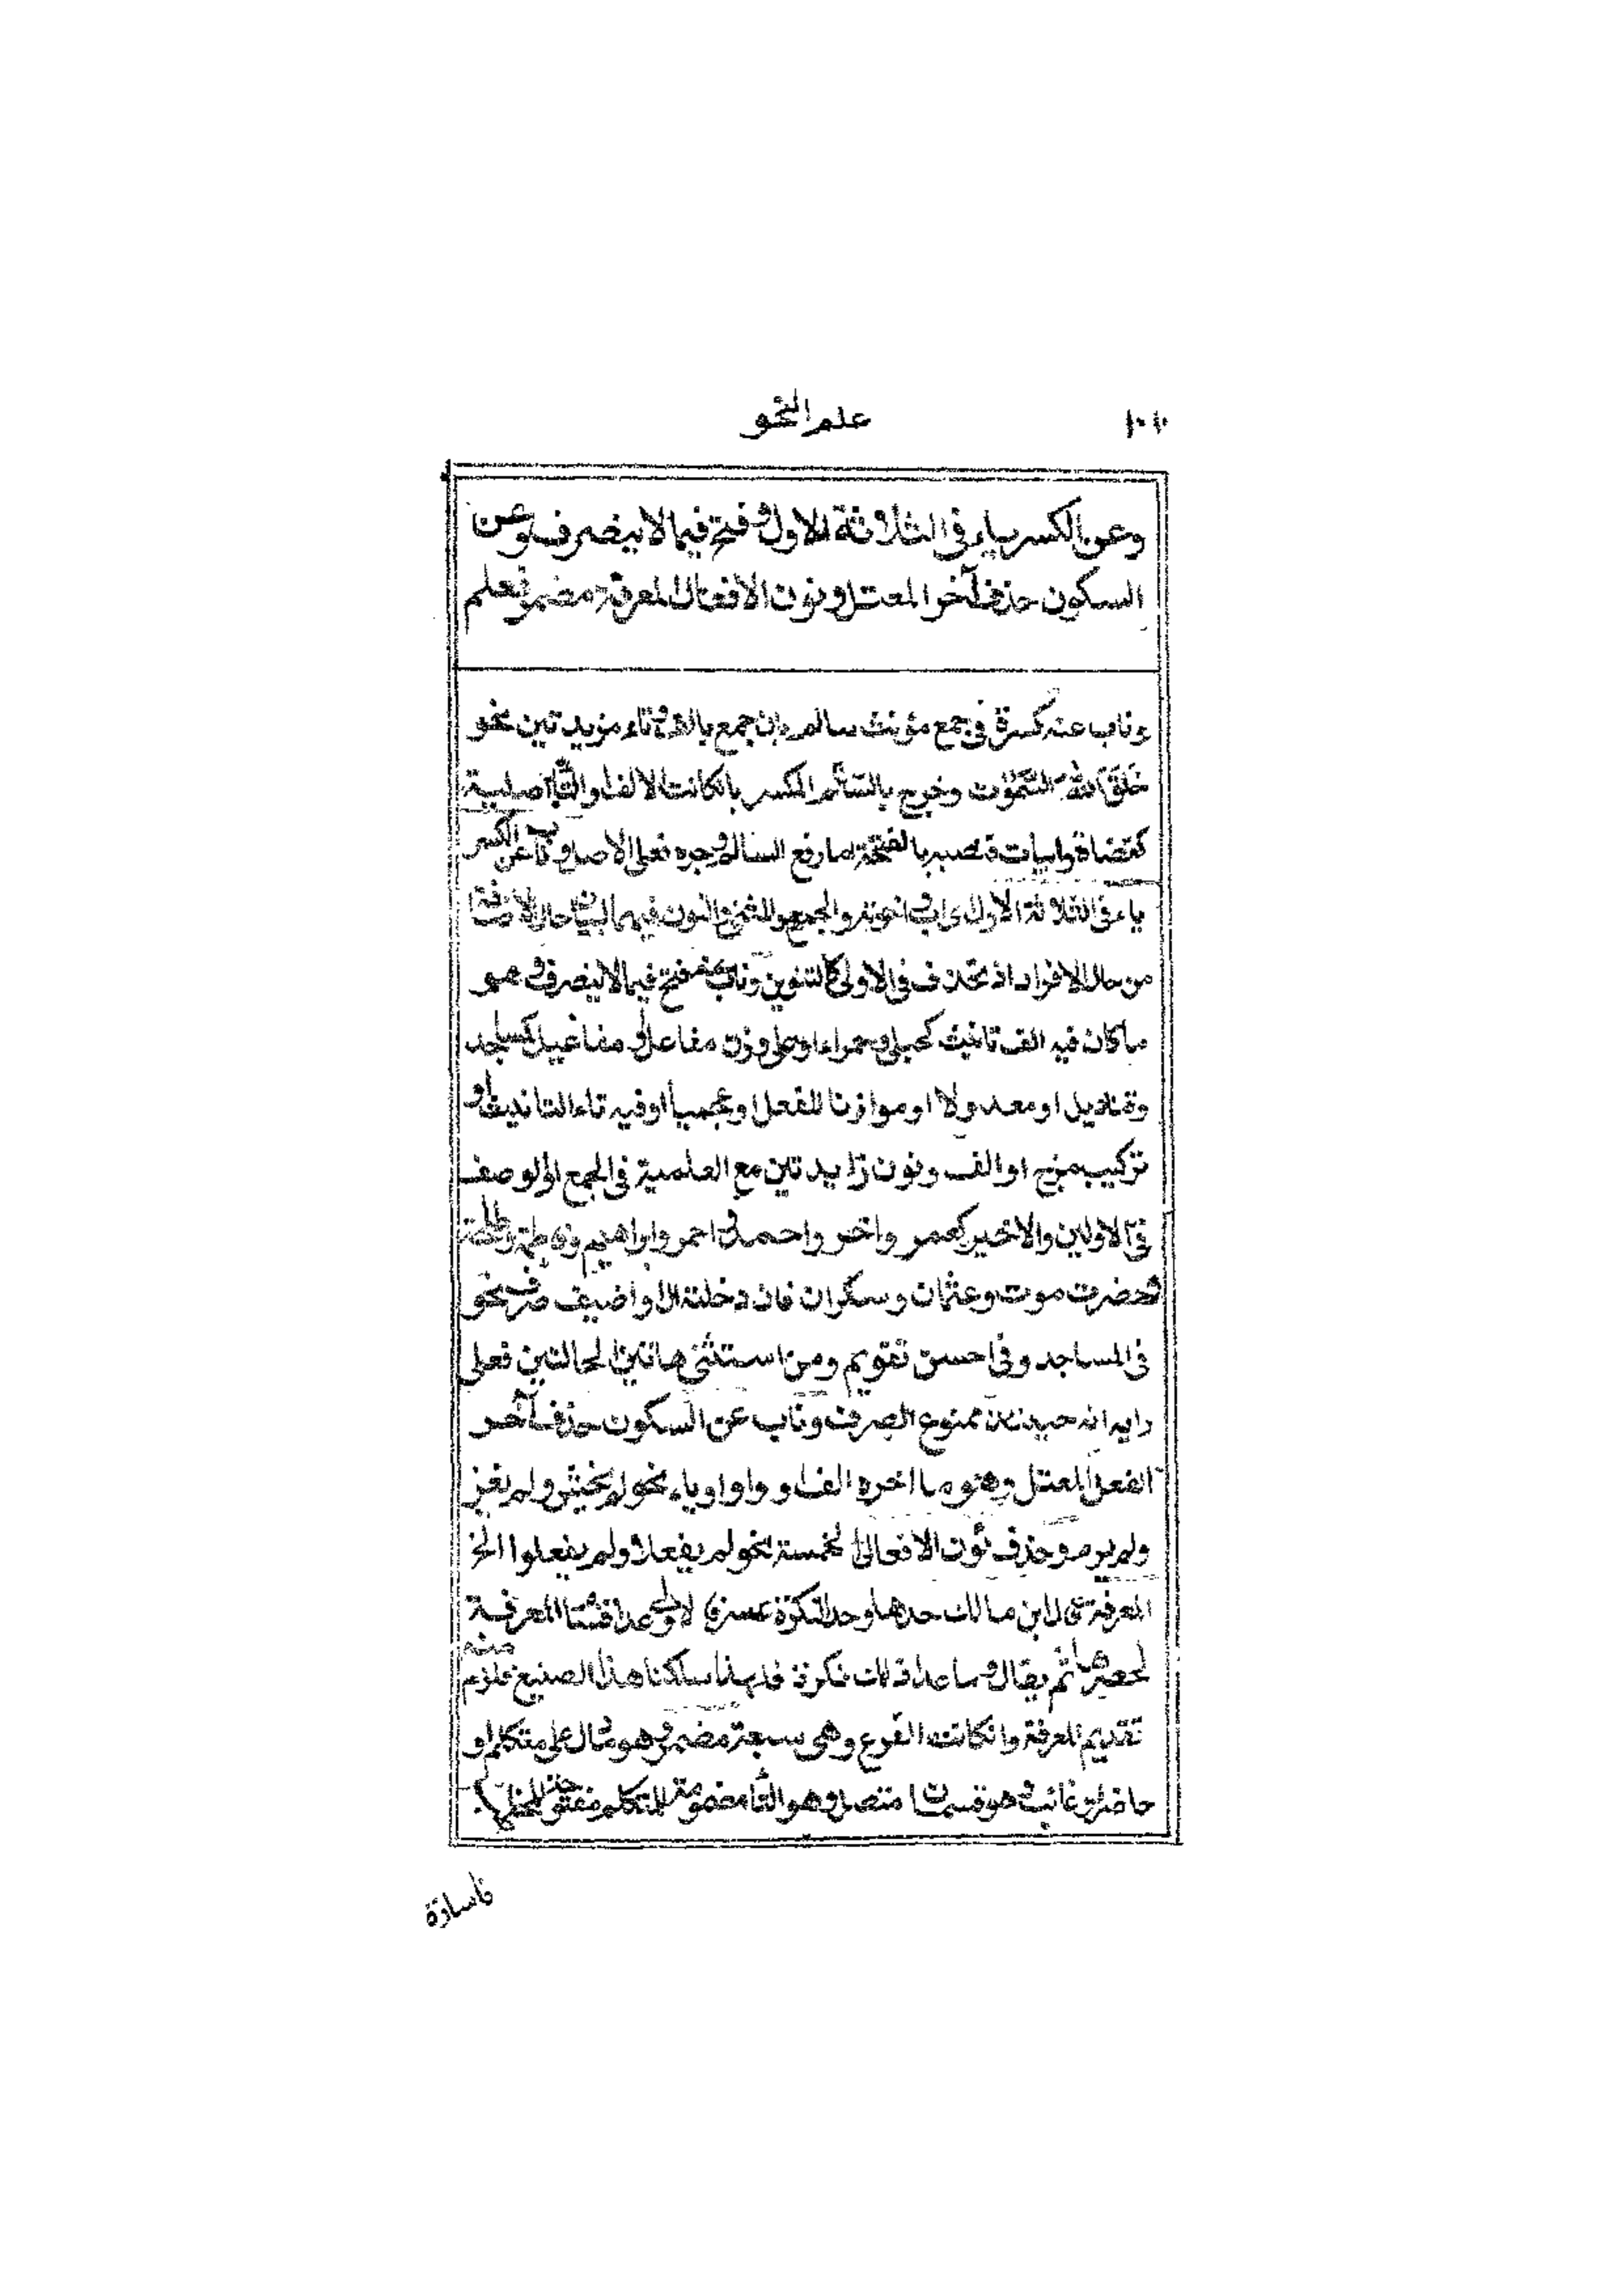 علم النحو
وعن الكسر ياء في الثلاثة الاول وفتح فيما لا ينصرف وعن
السكون حذف آخر المعتل ونون الافعال المعرفة مضمر فعلم
وناب عنه كسرة في جمع مؤنث سالم بان جمع بالف وتاء مزيدتين نحو
خَلَقَ اللهُ السَّمٰوٰت وخرج بالسالم المكسر بان كانت الالف او التاء اصلية
كقضاة وابيات فنصبه بالفتحة اما رفع السالم وجره فعلى الاصل وناب عن الكسر
ياء في الثلاثة الاول اى اب واخوته والجمع والمثنى والنون فيهما لبيان حال الاضافة
من حال الافراد اذ تحذف في الاولى كالتنوين وناب عنه فتح فيما لا ينصرف وهو
ما كان فيه الف تانيث كحبلى وحمراء او على وزن مفاعل او مفاعيل كمساجد
وقناديل او معدولا او موازنا للفعل او عجميا او فيه تاء التانيث او
تركيب مزج او الف ونون زايدتين مع العلمية في الجمع او الوصف
في الاولين والاخير كعمر واخر واحمد واحمر وابراهيم وفاطمة وطلحة
وحضرت موت وعثمان وسكران فان دخلته ال او اضيف صرف نحو
في المساجد وفي احسن تقويم ومن استثنى هاتين الحالتين فعلى
رايه انه حينئذ ممنوع الصرف وناب عن السكون حذف آخر
الفعل المعتل وهو ما اخره الف او واو او ياء نحو لم يخش ولم يغز
ولم يرم وحذف نون الافعال الخمسة نحو لم يفعلا ولم يفعلوا الخ
المعرفة قال ابن مالك حدها وحد النكرة عسر فالاولى عد اقسام المعرفة
لحصرها ثم يقال وما عدا ذلك نكرة فلهذا سلكنا هذا الصنيع فلزم منه
تقديم المعرفة وان كانت الفرع وهي سبعة مضمر وهو دال على متكلم او
حاضر او غائب وهو قسمان متصل وهو التاء مضمومة للمتكلم مفتوحة للمخاطب